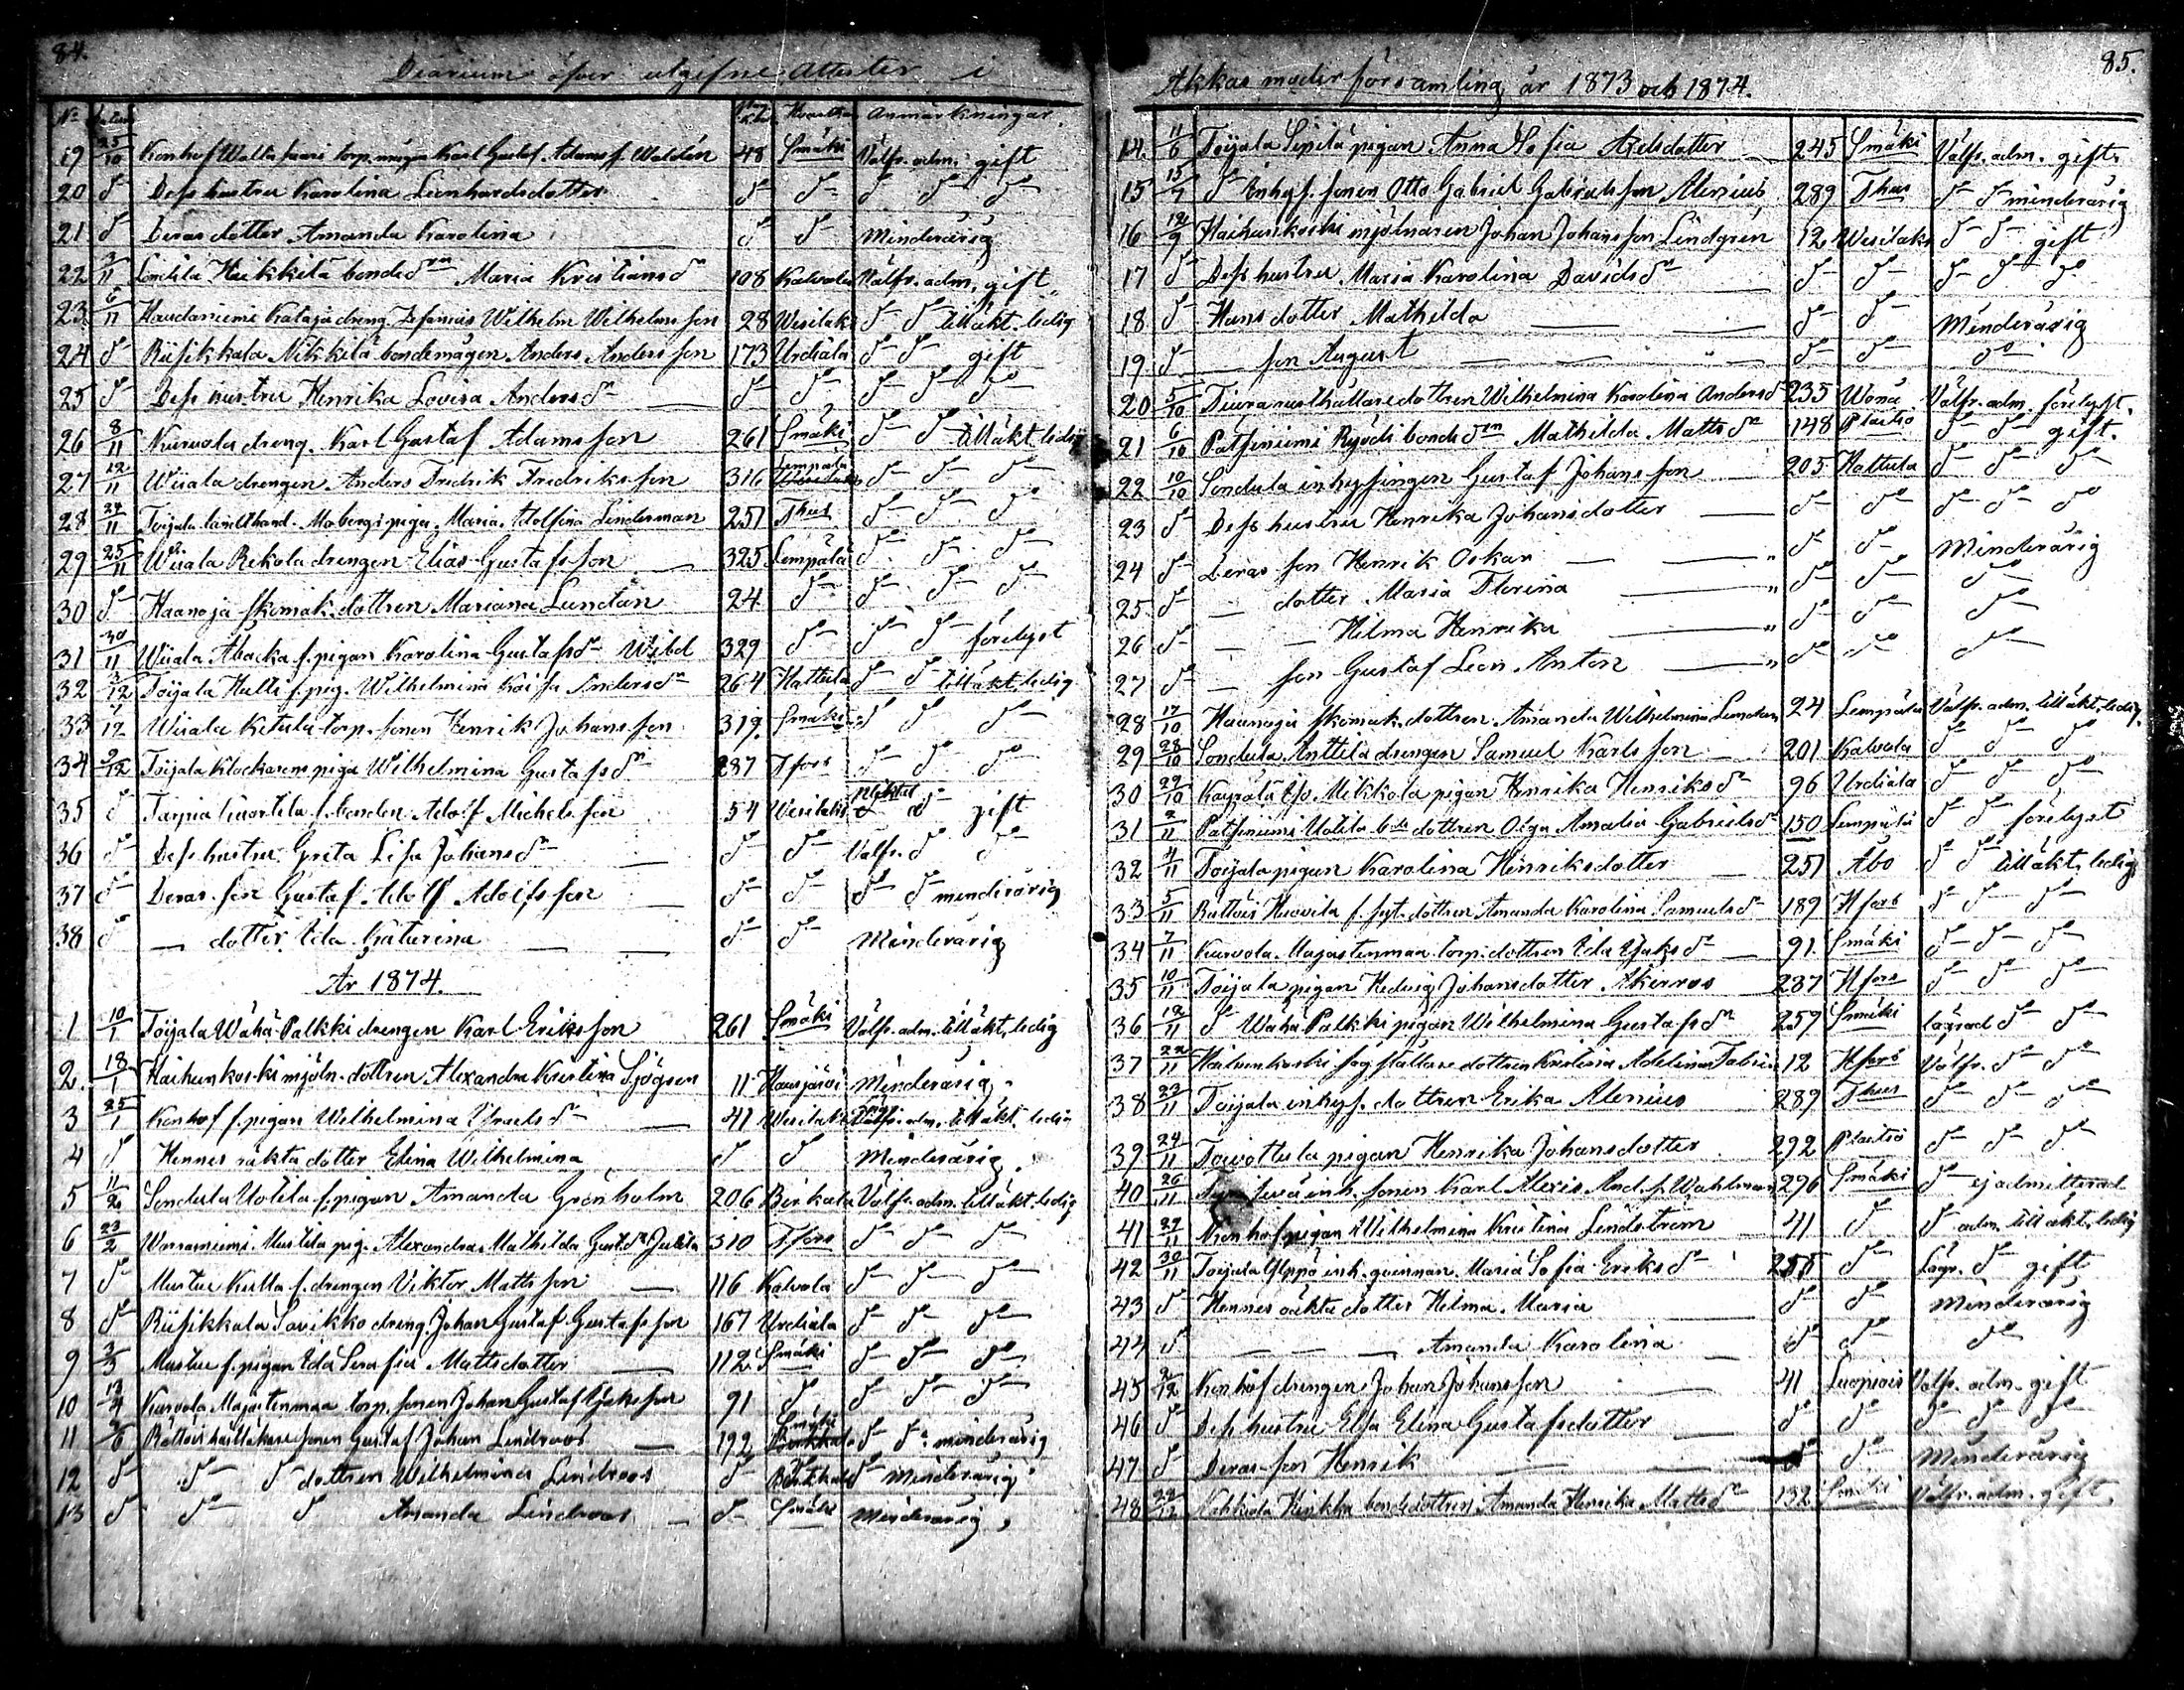 84.
Diarium öfver utgifne attester i
No Datum Pag. K.bok Hvarthän Anmärkningar
19 25/10 Konhof Walta torp. mågen Karl Gustaf Adams f. Waldén 48 Smäki Välfr. adm. gift
20 do Dess hustru Karolina Leonhardsdotter do do do do do
21 do Deras dotter Amanda Karolina do do Minderårig
22 3/11 Sontila Heikkilä bonde drn Maria Kristians dr 108 Kalvola Välfr. adm. gift
23. 6/11 Haudaniemi Kataja dreng. Zefanias Wilhelm Wilhelms son 28 Wesilaks do do till äkt. ledig
24 do Riisikkala Nikkilä bondemågen Anders Anders son 173 Urdiala do do gift
25 do Dess hustru Henrika Lovisa Anders dr do do do do do
26 8/11 Kurvola dreng. Karl Gustaf Adams son 261 Smäki do do till äkt. ledig
27 12/11 Wiiala drengen Anders Fredrik Fredriks son 316 Lempälä do do do
28 24/11 Toijala landthand. Mobergs piga Maria Adolfina Linderman 251 Thus do do do
29 25/11 Wiiala Rekola drengen Elias Gustafs son 325 Lempälä do do do
30 do Haanoja skomak. dottren Mariana Lundán 24 do do do do
31 30/11 Wiiala Abacka f. pigan Karolina Gustafs dr Wibel 329 do do do förelyst
32 3/12 Toijala Hulti f. pig. Wilhelmina Kaisa Anders dr 264 Hattula do do till äkt. ledig
33 7/12 Wiiala Ketala torp. sonen Henrik Johans son 319. Smäki do do do
34 9/12 Toijala Klockarens piga Wilhelmina Gustafs dr 287 Tfors do do do
35 do Tarpia f. bonden Adolf Michels son 54 Wesilaks do do gift
36 do Dess hustru Greta Lisa Johans dr do do Välfr. do do
37 do Deras son Gustaf Adolf Adolfs son do do do do minderårig
38 do — dotter Ida Katarina do do Minderårig
År 1874.
1 10/1 Toijala Wähä-Palkki drengen Karl Eriks son 261 Smäki Välfr. adm. till äkt. ledig
2. 18/1 Haihunkoski mjöln. dottren Alexandra Kristina Sjögren 11 Hausjärvi Minderårig
3 25/1 Konhof f. pigan Wilhelmina Israels dr 41 Wesilaks Välfr. adm. till äkt. ledig
4 do Hennes oäkta dotter Elina Wilhelmina do do Minderårig
5 11/2 Sondula Uotila f. pigan Amanda Grönholm 206 Birkala Välfr. adm. till äkt. ledig
6 23/2 Warraniemi Mustila pig. Alexandra Mathilda Gust. dr 310 Tfors do do do
7 do Mustue Kulla f. drengen Viktor Matts son 116 Kalvola do do do
8 do Riisikkala Savikko dreng. Johan Gustaf Gustafs son 167 Urdiala do do do
9 3/3 Mustue f. pigan Ida Serafia Mattsdotter 112 Smäki do do do
10 12/4 Kurvola Majastenmaa torp. sonen Johan Gustaf Isaks son 91 do do do do
11 Rättöis sonen Gustaf Johan Lindroos 192 Smäki do do minderårig
12 do do do dottren Wilhelmina Lindroos do Birkkala do Minderårig
13 do do do Amanda Lindroos do Smäki Minderårig
85.
Akkas moder församling år 1873 och 1874.
14. 11/6 Toijala Sipilä pigan Anna Sofia Axelsdotter 245 Smäki Välfr. adm. gift
15 15/7 do Inhys. sonen Otto Gabriel Gabriels son Alenius 289 Thus do do minderårig
16 12/9 Haihunkoski mjölnaren Johan Johans son Lindgrén 12 Wesilaks do do gift
17 do Dess hustru Maria Karolina Davids dr do do do do do
18 do Hans dotter Mathilda do do Minderårig
19 do — son August do do do
20 5/10 Tiura rusthållare dottren Wilhelmina Karolina Anders dr 235 Wånå Välfr. adm. förelyst.
21 6/10 Patsniemi Ryödi bonde drn Mathilda Matts dr 148 Plaitio do do gift.
22 10/10 Sondula inhysingen Gustaf Johans son 205 Hattula do do do
23 do Dess hustru Henrika Johansdotter do do do do do
24 do Deras son Henrik Oskar do do Minderårig
25 do — dotter Maria Florina do do do
26 do — — Hilma Henrika do do do
27 do — son Gustaf Leon Anton do do do
28 17/10 Haanoja skomak. dottren Amanda Wilhelmina Lundan 24 Lempälä Välfr. adm. till äkt. ledig
29 28/10 Sondula Anttila drengen Samuel Karls son 201 Kalvola do do do
30 29/10 Mikkola pigan Henrika Henriks dr 96 Urdiala do do do
31 2/11 Patsniemi Uotila bde dottren Olga Amalia Gabriels dr 150 Lempälä do do förelyst
32 4/11 Toijala pigan Karolina Henriksdotter 251 Åbo do do till äkt. ledig
33 5/11 Rättöis Huovila f. dottren Amanda Karolina Samuels dr 189 Hfors do do do
34 7/11 Kurvola Majastenmaa torp. dottren Ida Isaks dr 91. Smäki do do do
35 10/11 Toijala pigan Hedvig Johansdotter Åkerros 287 Hfors do do do
36 12/11 do Wähä Palkki pigan Wilhelmina Gustafs dr 259 Smäki lagrad do do
37 22/11 Haihunkoski dottren Kristina Adelina 12 Hfors Välfr. do do
38 23/11 Toijala inhys. dottren Erika Alenius 289 Thus do do do
39 24/11 Toivottula pigan Henrika Johansdotter 292 Plaitio do do do
40 26/11 inh. sonen Karl Alexis And. f. Wahlman 296 Smäki do ej admitterad
41 27/11 Kronhof pigan Wilhelmina Kristina Lindström 41 do do adm. till äkt. ledig
42 30/11 Toijala Yleppö inh. qvinnan Maria Sofia Eriks dr do Lagr. do gift
43 do Hennes oäkta dotter Helma Maria do do Minderårig
44 do — — — Amanda Karolina do do do
45 2/12 Konhof drengen Johan Johans son 41 Luopiois Välfr. adm. gift
46 do Dess hustru Elsa Elina Gustafsdotter do do do do do
47 do Deras son Henrik do do Minderårig
48 28/12 Kahkola bonde dottren Amanda Henrika Matts dr 132 Smäki Välfr. adm. gift.